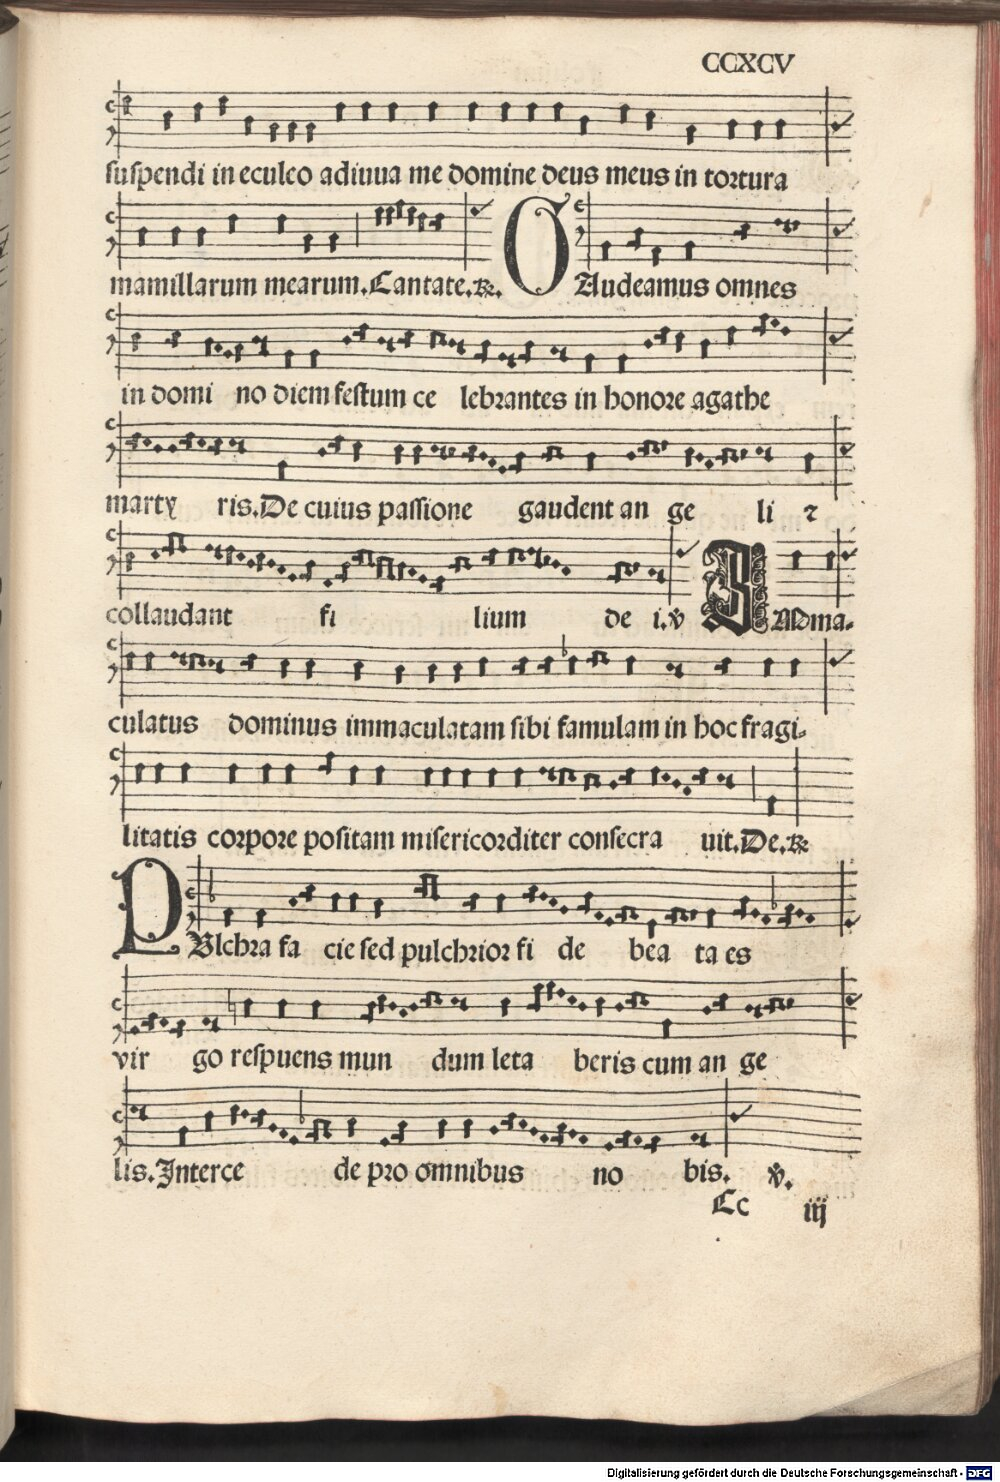 CCXCV
suspendi in eculeo adiuua me domine deus meus in tortura
mamillarum mearum. Cantate. ℟. GAudeamus omnes
in domi no diem festum ce lebrantes in honore agathe
marty ris. De cuius passione gaudent an ge li ⁊
collaudant fi lium de i. ℣ IMma-
culatus dominus immaculatam sibi famulam in hoc fragi-
litatis corpore positam misericorditer consecra uit. De. ℟
PUlchra fa cie sed pulchrior fi de bea ta es
vir go respuens mun dum leta beris cum an ge
lis. Interce de pro omnibus no bis. ℣.
Cc iij
Digitalisierung gefördert durch die Deutsche Forschungsgemeinschaft - DFG